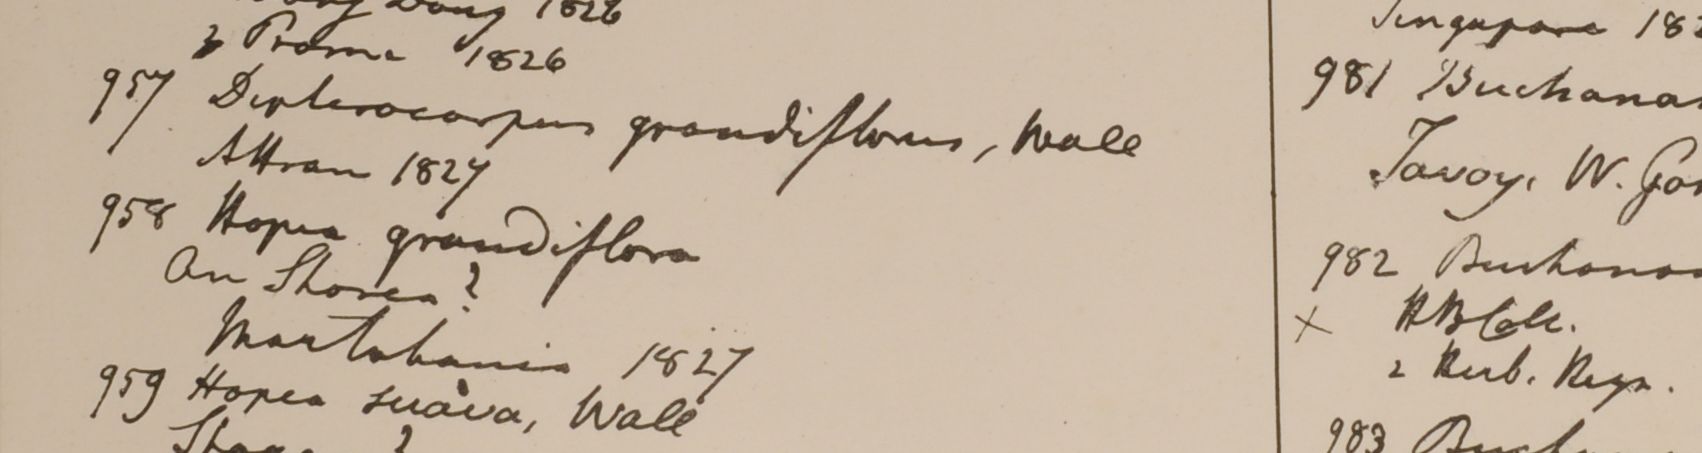 1826
2 Prome 1826
957 Dipterocarpus grandiflorus, Wall
Attran 1827
958 Hopea grandiflora
An Shorea ?
Martabania 1827
959 Hopea suava, Wall
Shorea ?
Singapore 182
981 Buchanan
Tavoy, W. Gom
982 Buchanan
x HBCalc.
2 Herb. Heyn.
983